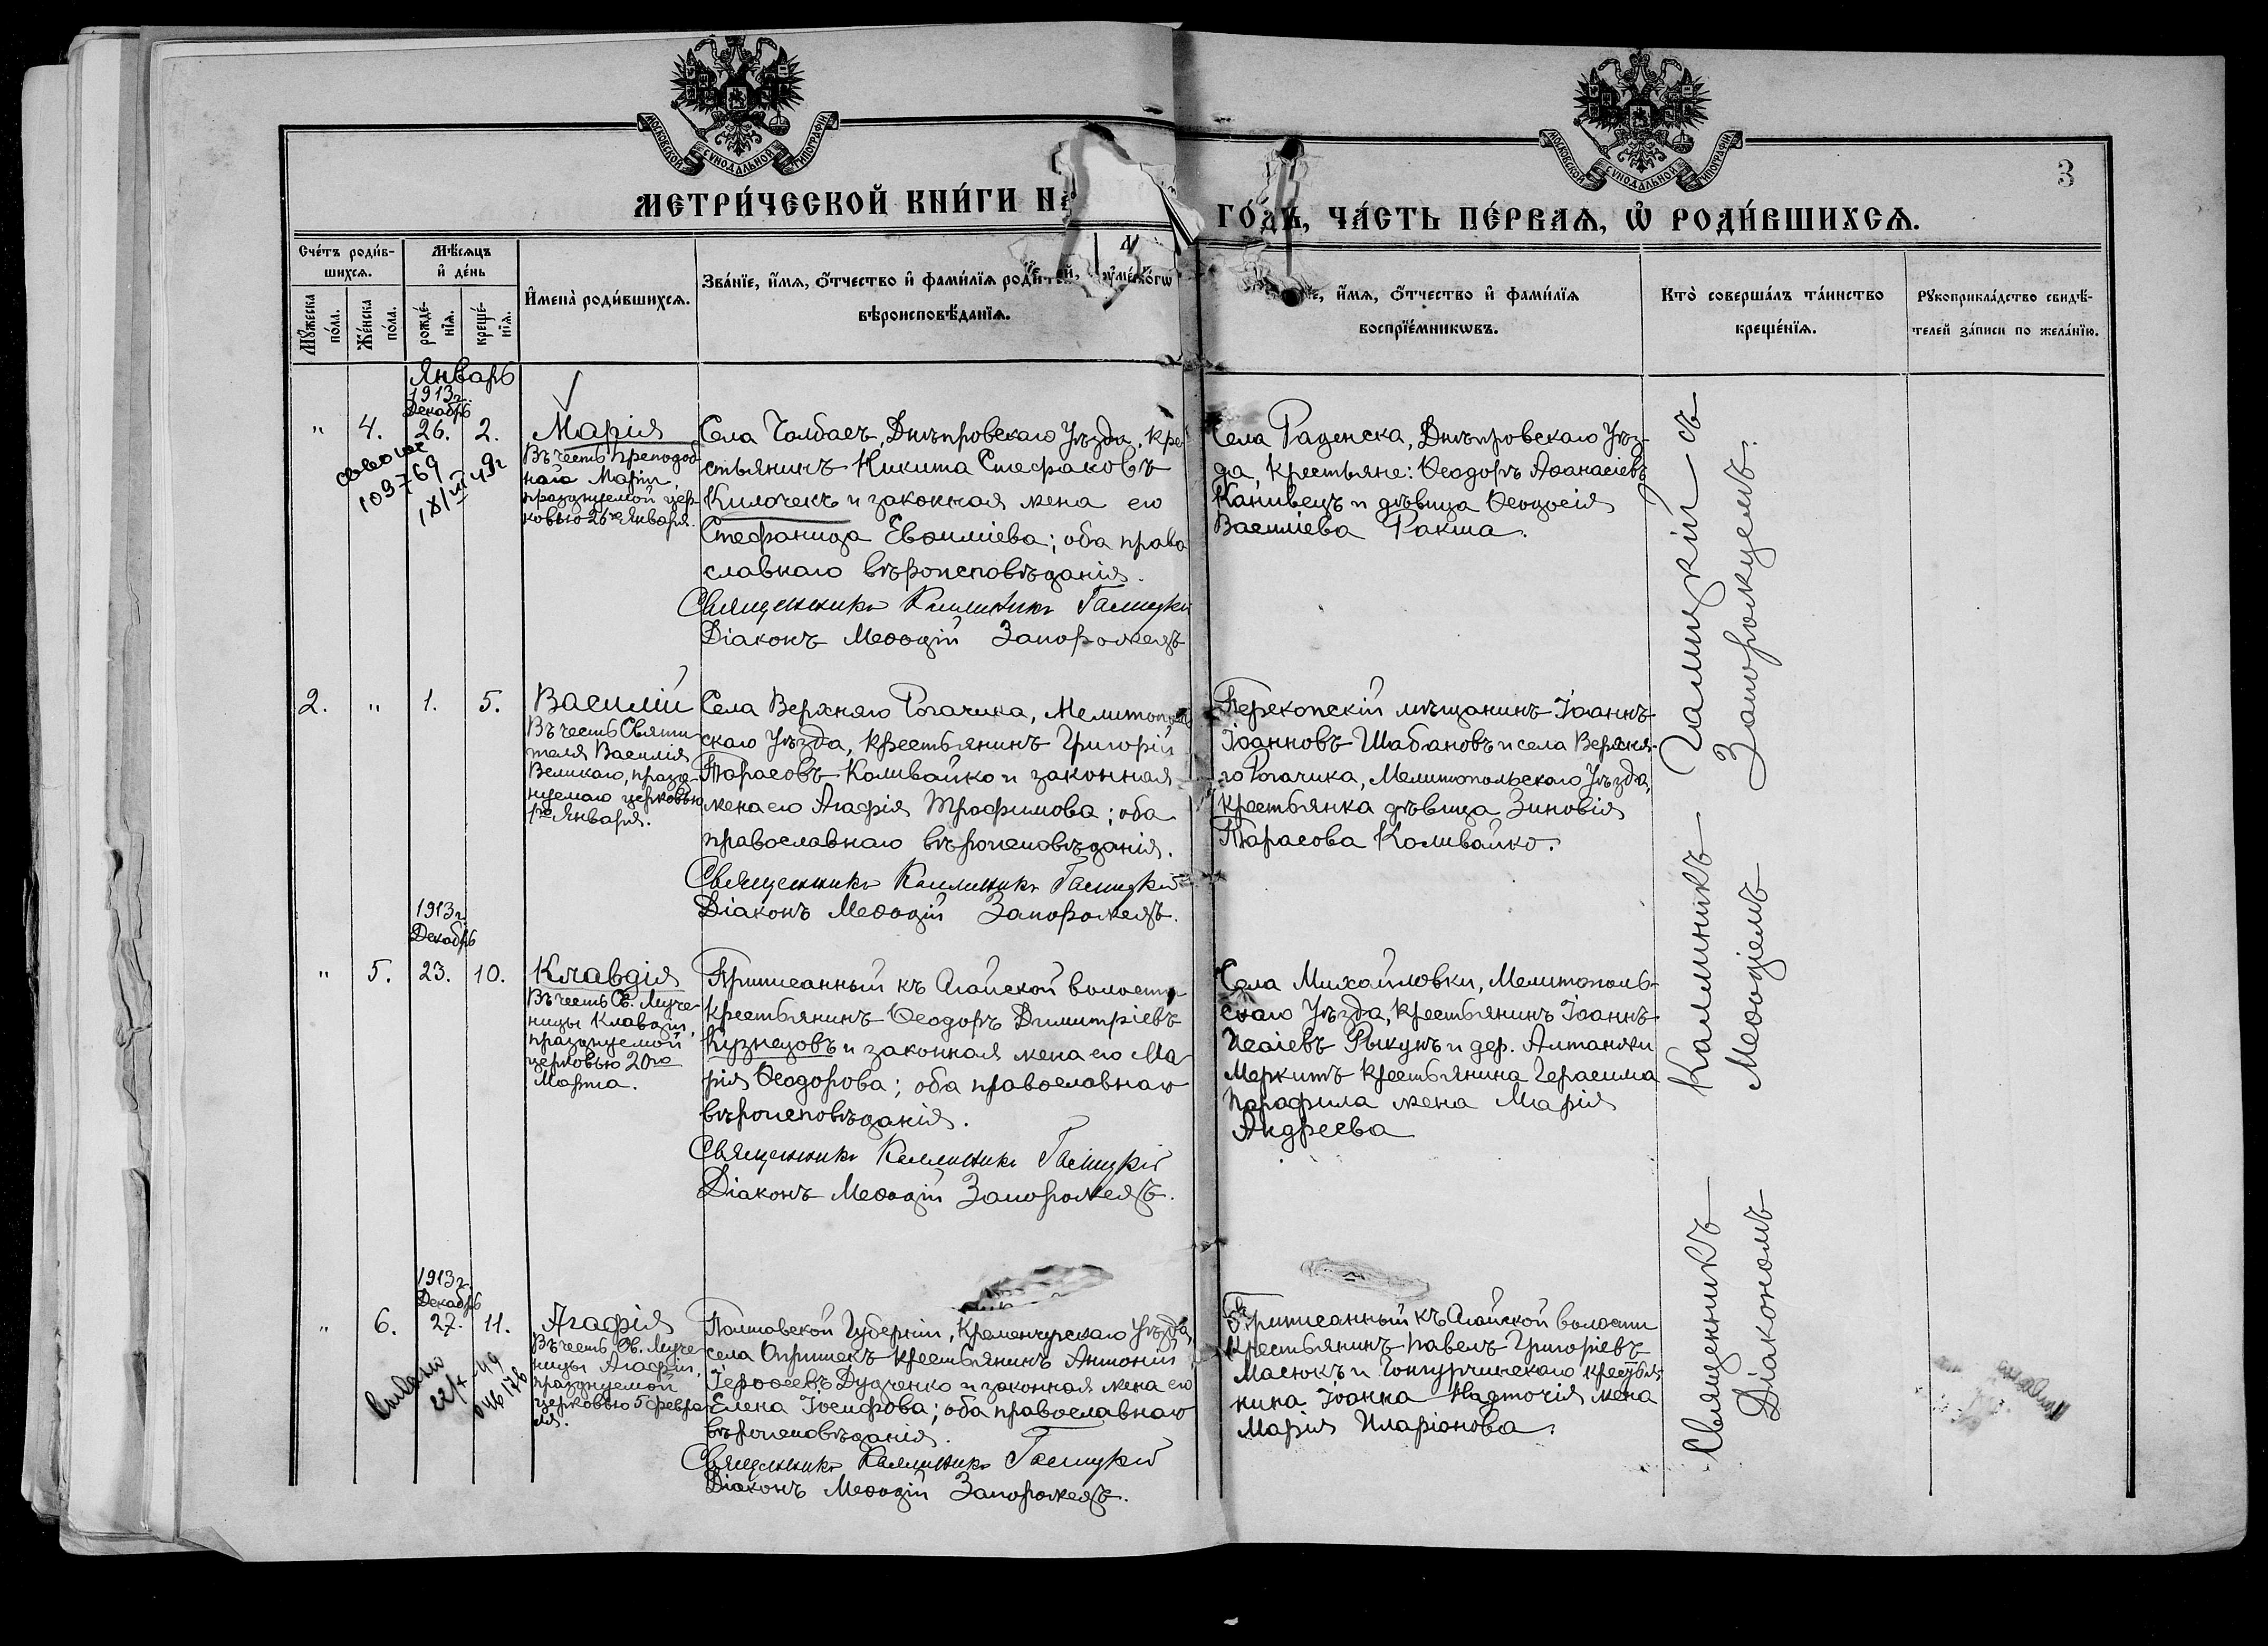 МОСКОВСКОЙ СУНОДАЛЬНОЙ ТИПОГРАФІИ
МОСКОВСКОЙ СУНОДАЛЬНОЙ ТИПОГРАФІИ
3
МЕТРИ́ЧЕСКОЙ КНИ́ГИ НА
ГО́ДЪ, ЧА́СТЬ ПЕ́РВАѦ, Ѡ РОДИ́ВШИХСѦ.
Сче́тъ роди́в-
шихсѧ.
Мꙋжеска по́ла.
Же́нска по́ла.
Мѣ́сѧцъ
и҆ де́нь
рожде́-
нїѧ.
креще́-
нїѧ.
И҆мена̀ роди́вшихсѧ.
Зва́нїе, и҆́мѧ, ѻ҆́тчество и҆ фами́лїѧ роди́телей,
вѣроисповѣ́данїѧ.
и҆́мѧ, ѻ҆́тчество и҆ фами́лїѧ
воспрїе́мникѡвъ.
Кто̀ соверша́лъ та́инство
креще́нїѧ.
Рꙋкоприкла́дство свидѣ́-
телей за́писи по жела́нїю.
Январь
1913 г.
Декабрь
" 4. 26. 2.
109769
Марія
Въ честь преподоб
ной Маріи,
празднуемой цер-
ковью 26го Января.
Села Чалбасъ, Днѣпровскаго Уѣзда, кре
стьянинъ Никита Стефановъ
Килочекъ и законная жена его
Стефанида Евѳиміева; оба право
славнаго вѣроисповѣданія.
Священникъ Каллиникъ Галицкій
Діаконъ Меѳодій Запорожецъ
Села Раденска, Днѣпровскаго Уѣз-
да, крестьяне: Ѳеодоръ Аѳанасіевъ
Канивецъ и дѣвица Ѳеодосія
Василіева Ракша.
2. " 1. 5.
Василій
Въ честь Святи
теля Василія
Великаго, празд-
нуемаго церковью
1го Января.
Села Верхняго Рогачика, Мелитополь
скаго Уѣзда, крестьянинъ Григорій
Тарасовъ Коливайко и законная
жена его Агафія Трофимова; оба
православнаго вѣроисповѣданія.
Священникъ Каллиникъ Галицкій
Діаконъ Меѳодій Запорожецъ.
Перекопскій мѣщанинъ Іоаннъ
Іоанновъ Шабановъ и села Верхня-
го Рогачика, Мелитопольскаго Уѣзда,
крестьянка дѣвица Зиновія
Тарасова Коливайко.
1913 г.
Декабрь
" 5. 23. 10.
Клавдія
Въ честь Св. Муче-
ницы Клавдіи,
празднуемой
церковью 20го
Марта.
Приписанный къ Агайской волости
крестьянинъ Ѳеодоръ Димитріевъ
Кузнецовъ и законная жена его Ма-
рія Ѳеодорова; оба православнаго
вѣроисповѣданія.
Священникъ Каллиникъ Галицкій
Діаконъ Меѳодій Запорожецъ.
Села Михайловки, Мелитополь-
скаго Уѣзда, крестьянинъ Іоаннъ
Исаіевъ Рыкунъ и дер.
Меркитъ крестьянина Герасима
жена Марія
Андреева
1913 г.
Декабрь
" 6. 27. 11.
Агафія
Въ честь Св. Муче-
ницы Агафіи,
празднуемой
церковью 5 февра-
ля.
Полтавской Губерніи, Кременчугскаго Уѣзда,
села Опришекъ крестьянинъ Антоній
Іероѳеевъ Дудченко и законная жена его
Елена Іосифова; оба православнаго
вѣроисповѣданія.
Священникъ Каллиникъ Галицкій
Діаконъ Меѳодій Запорожецъ.
Приписанный къ Агайской волости
крестьянинъ Павелъ Григоріевъ
Масюкъ и крестья
нина Іоанна Надточія жена
Марія Иларіонова.
Священникъ Каллиникъ Галицкій съ
Діакономъ Меѳодіемъ Запорожцемъ.